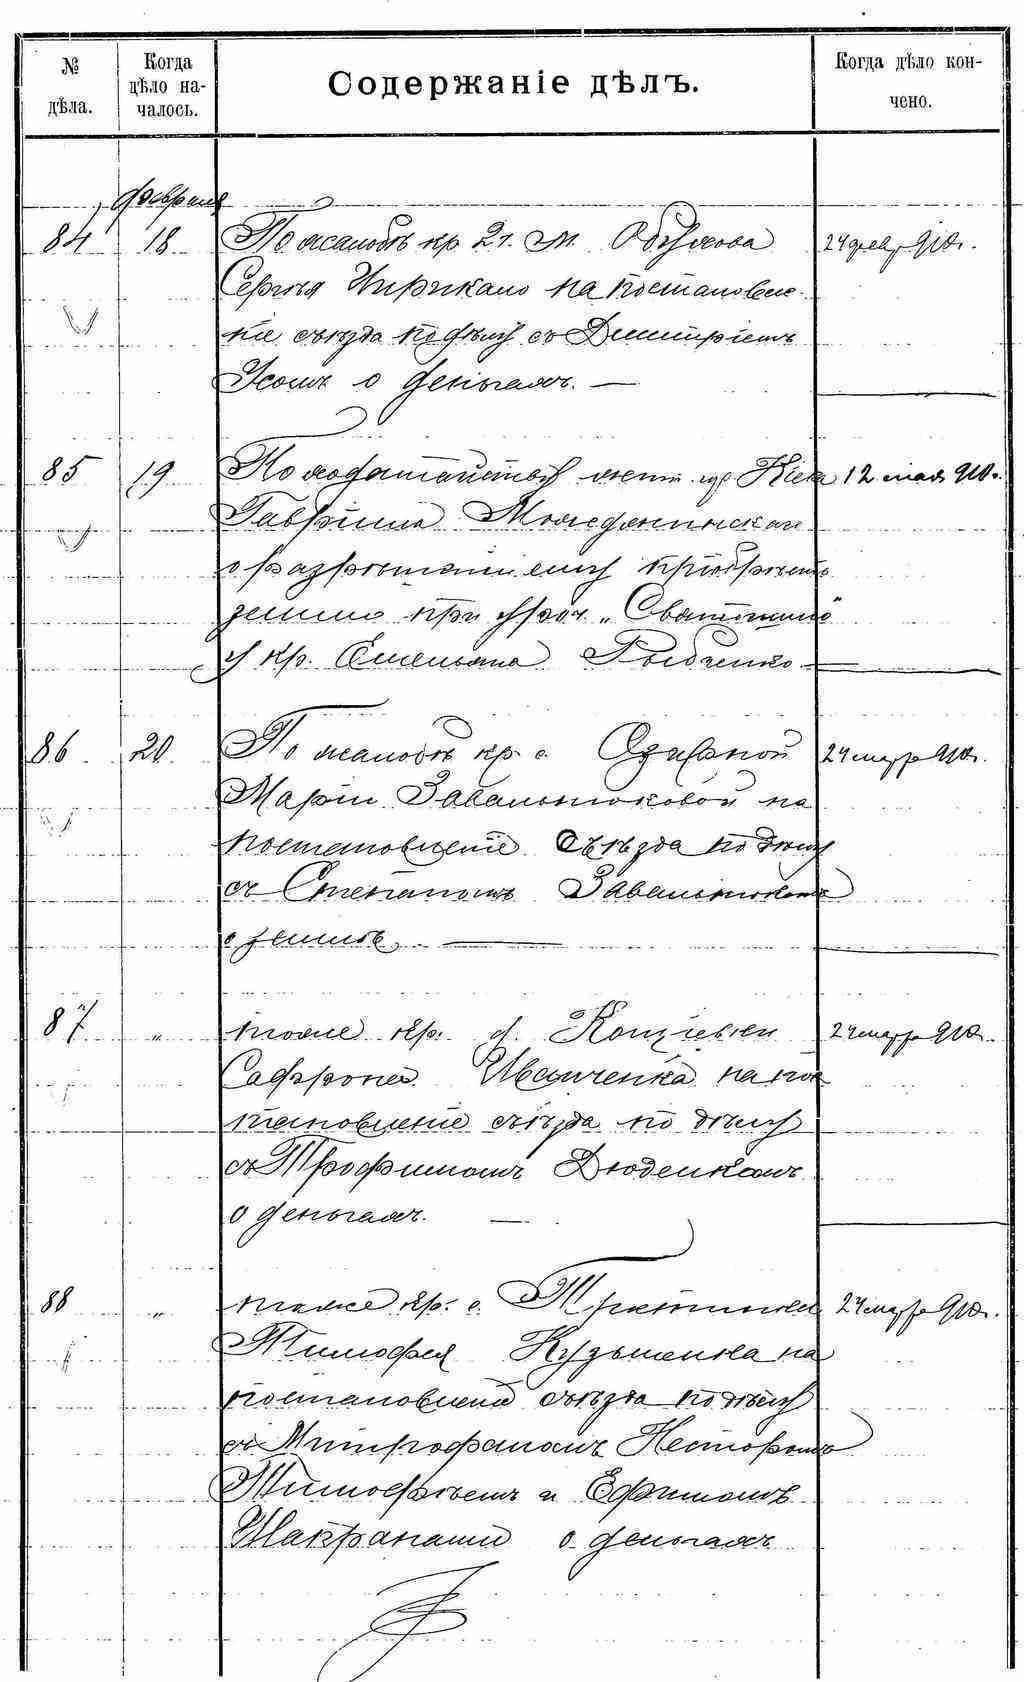 № дѣла.
Когда дѣло началось.
Содержаніе дѣлъ.
Когда дѣло кончено.
февраля
84 18 По жалобѣ кр. 2 г. м. Обухова 24 февр 910г.
Сергѣя Чирикало на постановле-
ніе съѣзда по дѣлу съ Дмитріемъ
Усомъ о деньгахъ. —
85 19 По ходатайству мѣщ. гор. Кіева 12 мая 910г.
Гавріила
о разрѣшеніи ему пріобрѣсть
землю при уроч. „Святошино"
у кр. Емельяна Рыбченко —
86 20 По жалобѣ кр. с. Озирной 24 марта 910г.
Маріи Завальнюковой на
постановленіе Съѣзда по дѣлу
съ Степаномъ Завальнюкомъ
о землѣ, —
87 „ тоже кр. д. 24 марта 910г.
Сафрона Иванченка на пос
тановленіе съѣзда по дѣлу
съ Трофимомъ Дюденкомъ
о деньгахъ. —
88 „ тоже кр. с. 24 марта 910г.
Тимофея Кузьменка на
постановленіе съѣзда по дѣлу
съ Митрофаномъ Несторомъ
Тимофѣемъ и Ефимомъ
о деньгахъ